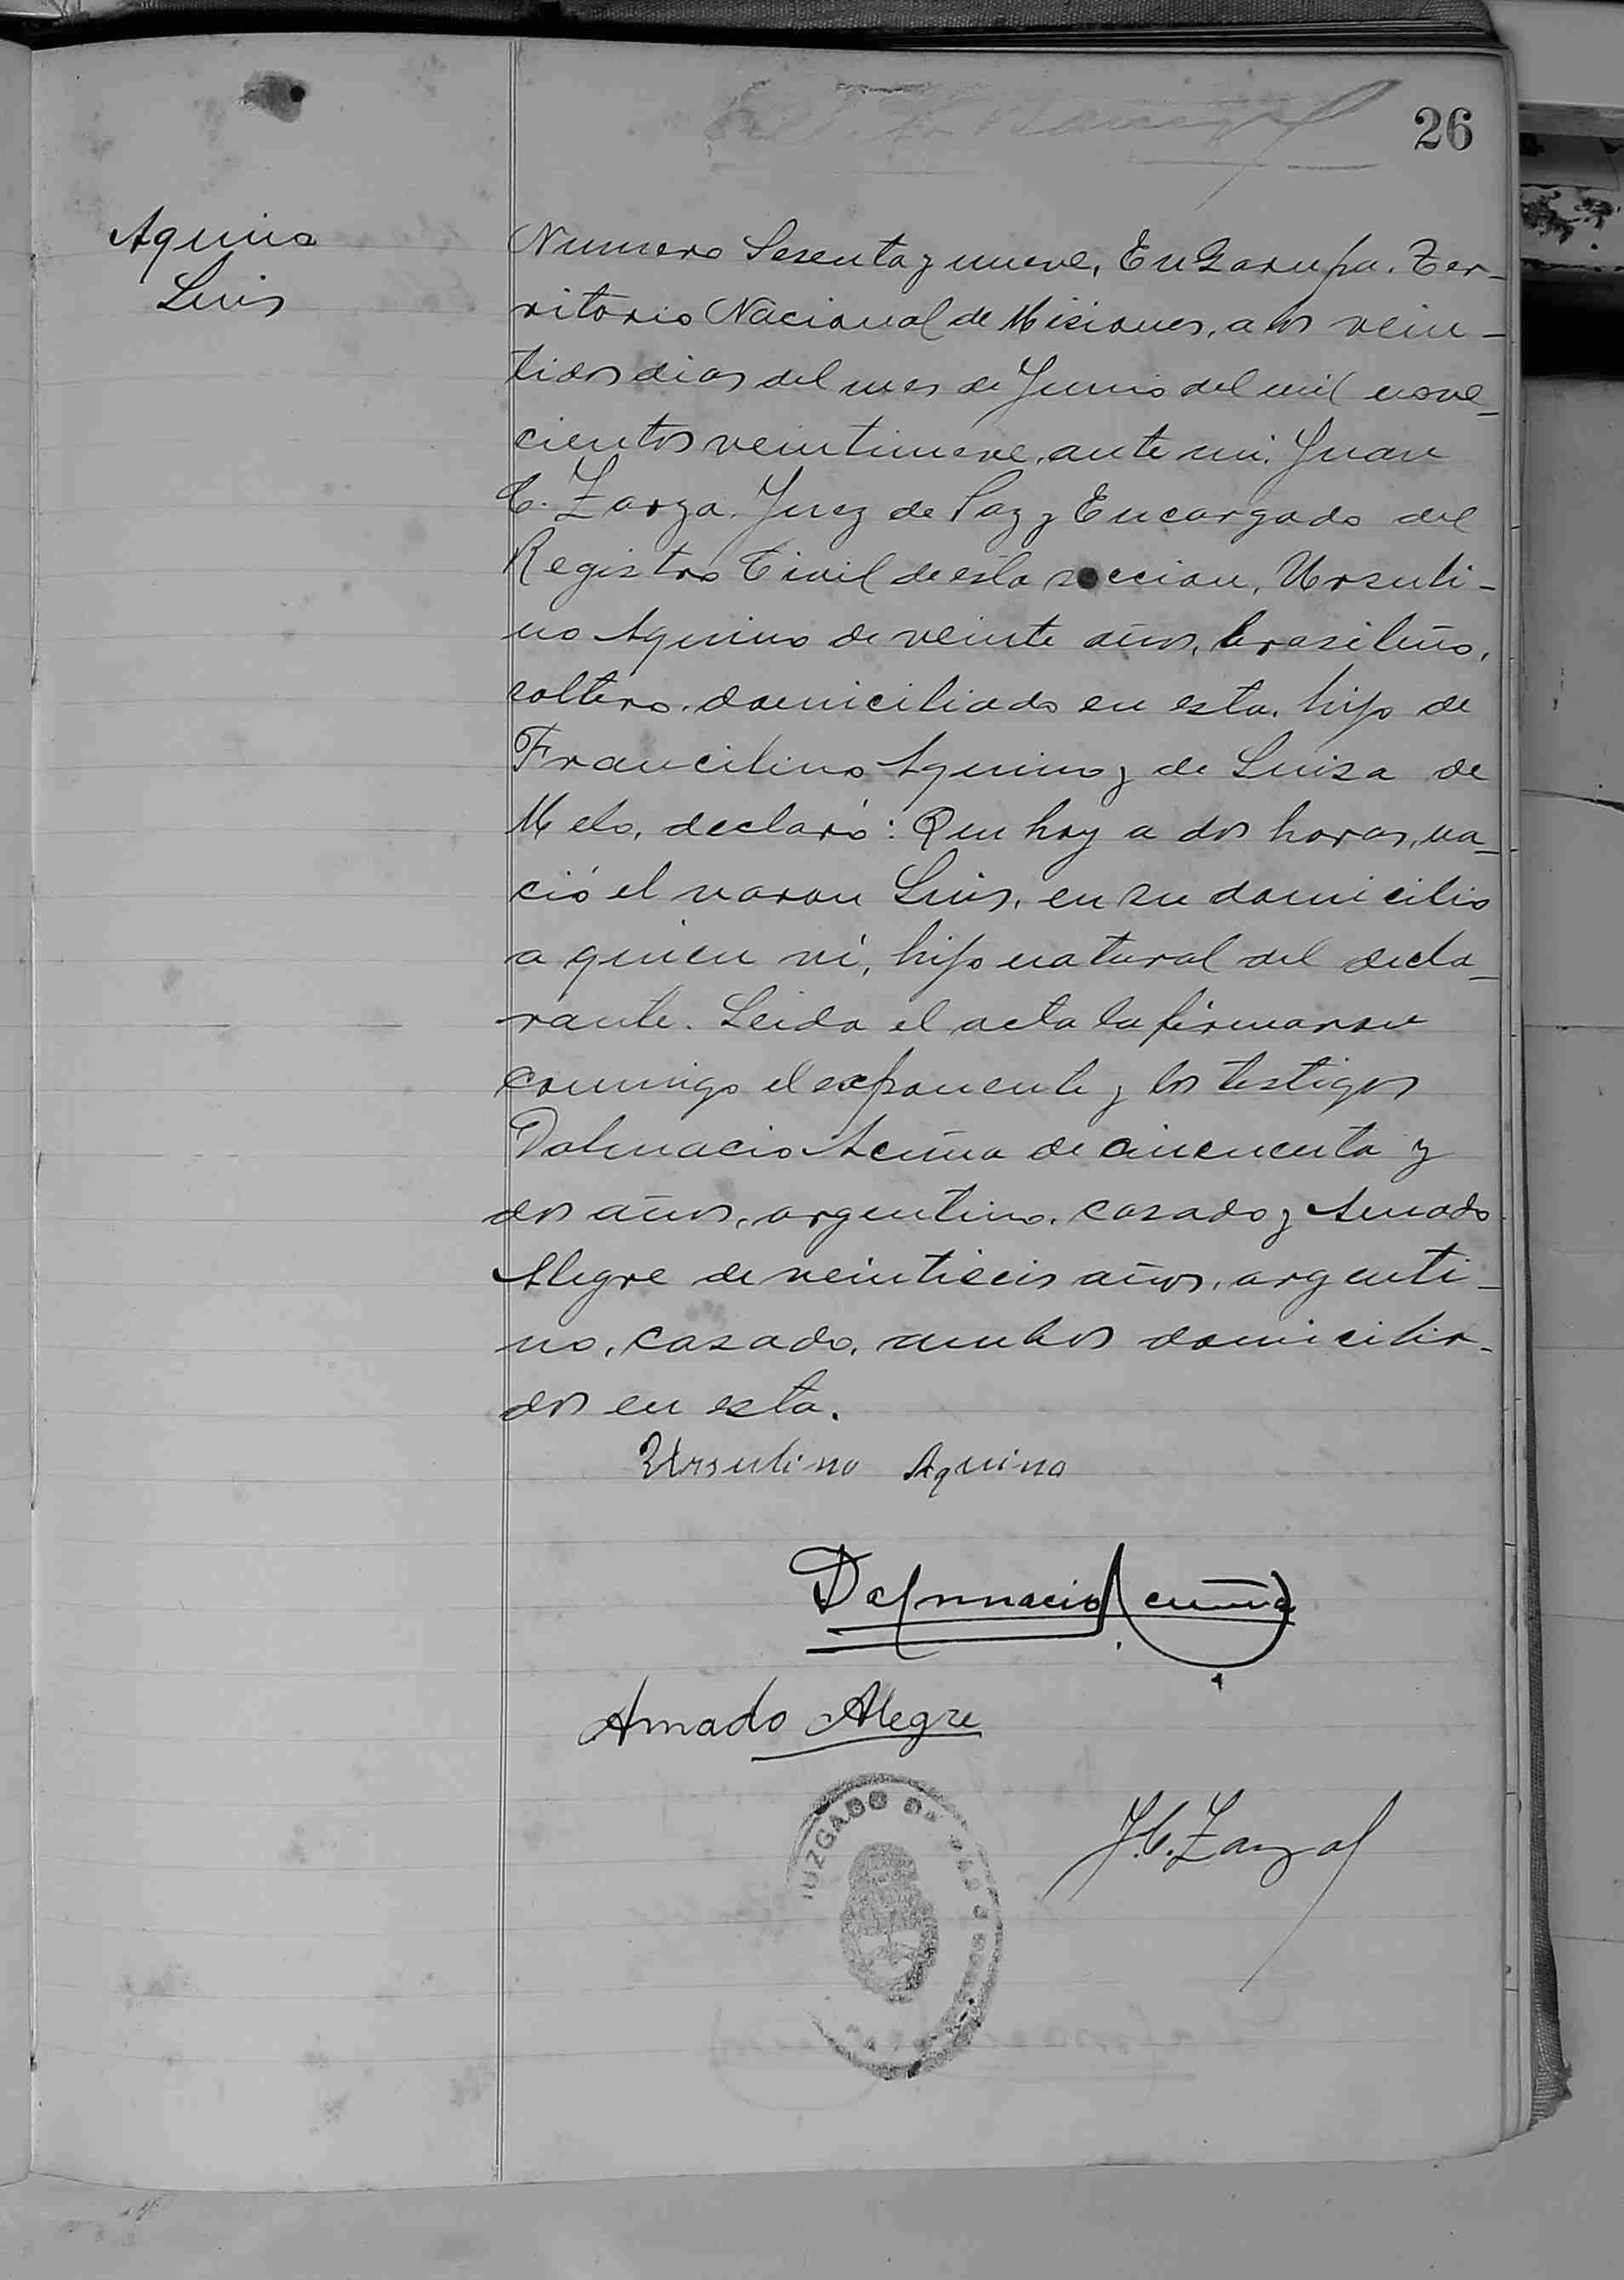 26
Aquino
Luis
Numero Sesenta y nueve, En Garupa. Ter-
ritorio Nacional de Misiones, a los vein-
tidos dias del mes de Junio del mil nove-
cientos veintinueve, ante mi. Juan
C. Zarza. Juez de Paz y Encargado del
Registro Civil de esta seccion, Ursuli-
no Aquino de veinte años, brasileño,
soltero. domiciliado en esta. hijo de
Francilino Aquino y de Luisa de
Melo, declaró: Que hoy a dos horas, na-
ció el varon Luis, en su domicilio
a quien ví, hijo natural del decla-
rante. Leida el acta la firmaron
conmigo el exponente y los testigos
Dalmacio Acuña de cincuenta y
dos años, argentino. casado y Amado
Alegre de veintiseis años, argenti-
no, casado, ambos domicilia-
dos en esta.
Ursulino Aquino
Dalmacio Acuña
Amado Alegre
JUZGADO DE
J. C. Zarza